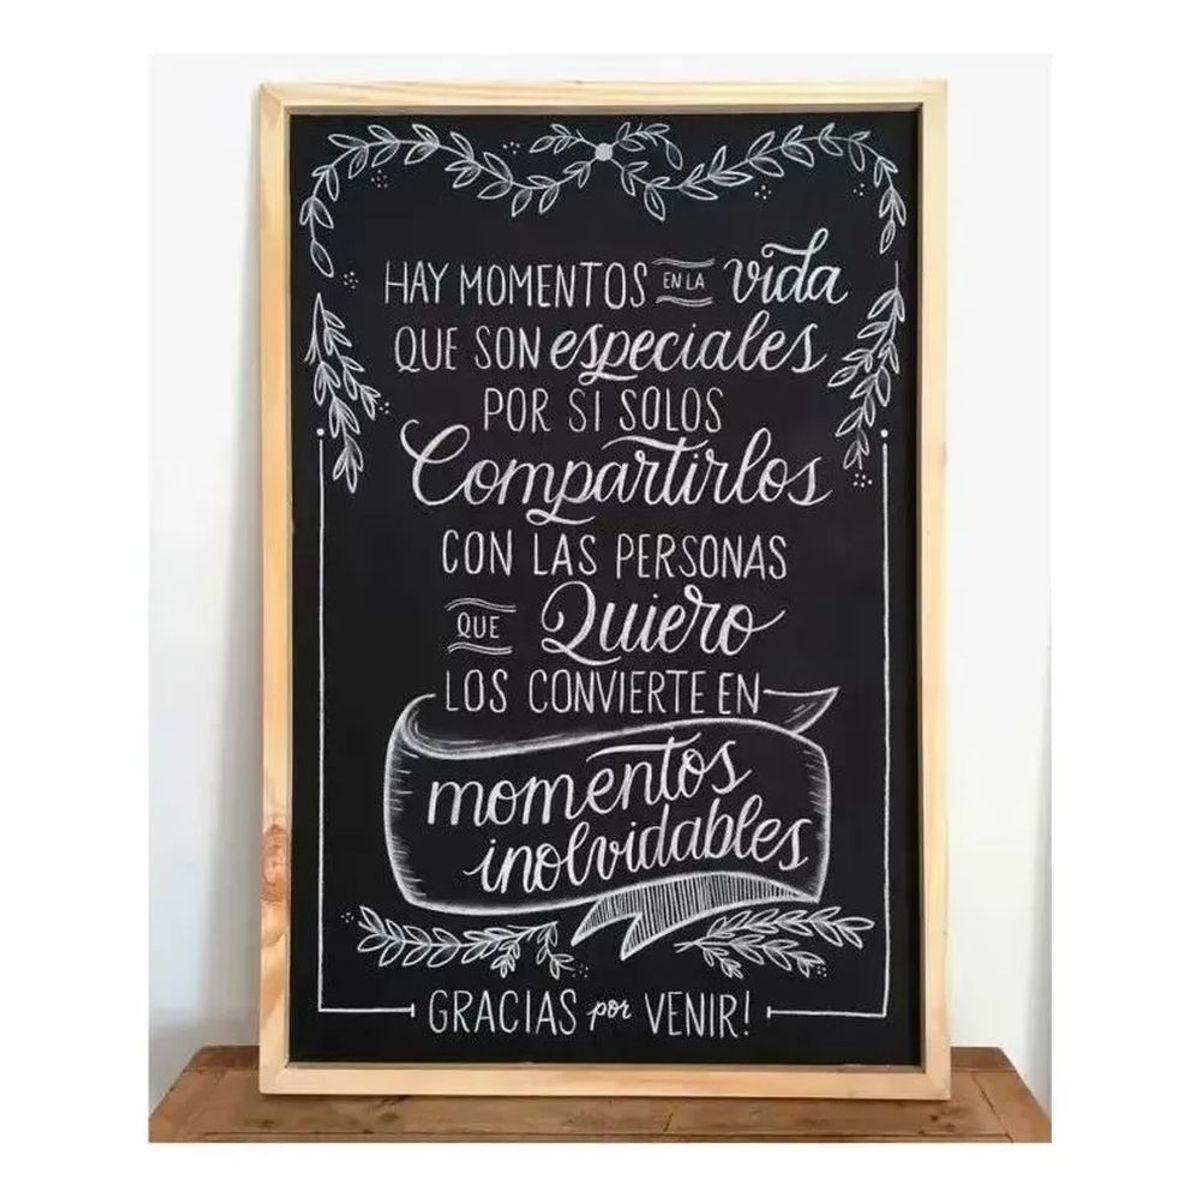 HAY MOMENTOS EN LA vida
QUE SON especiales
POR SI SOLOS
Compartirlos
CON LAS PERSONAS
QUE Quiero
LOS CONVIERTE EN
momentos
inolvidables
GRACIAS por VENIR!